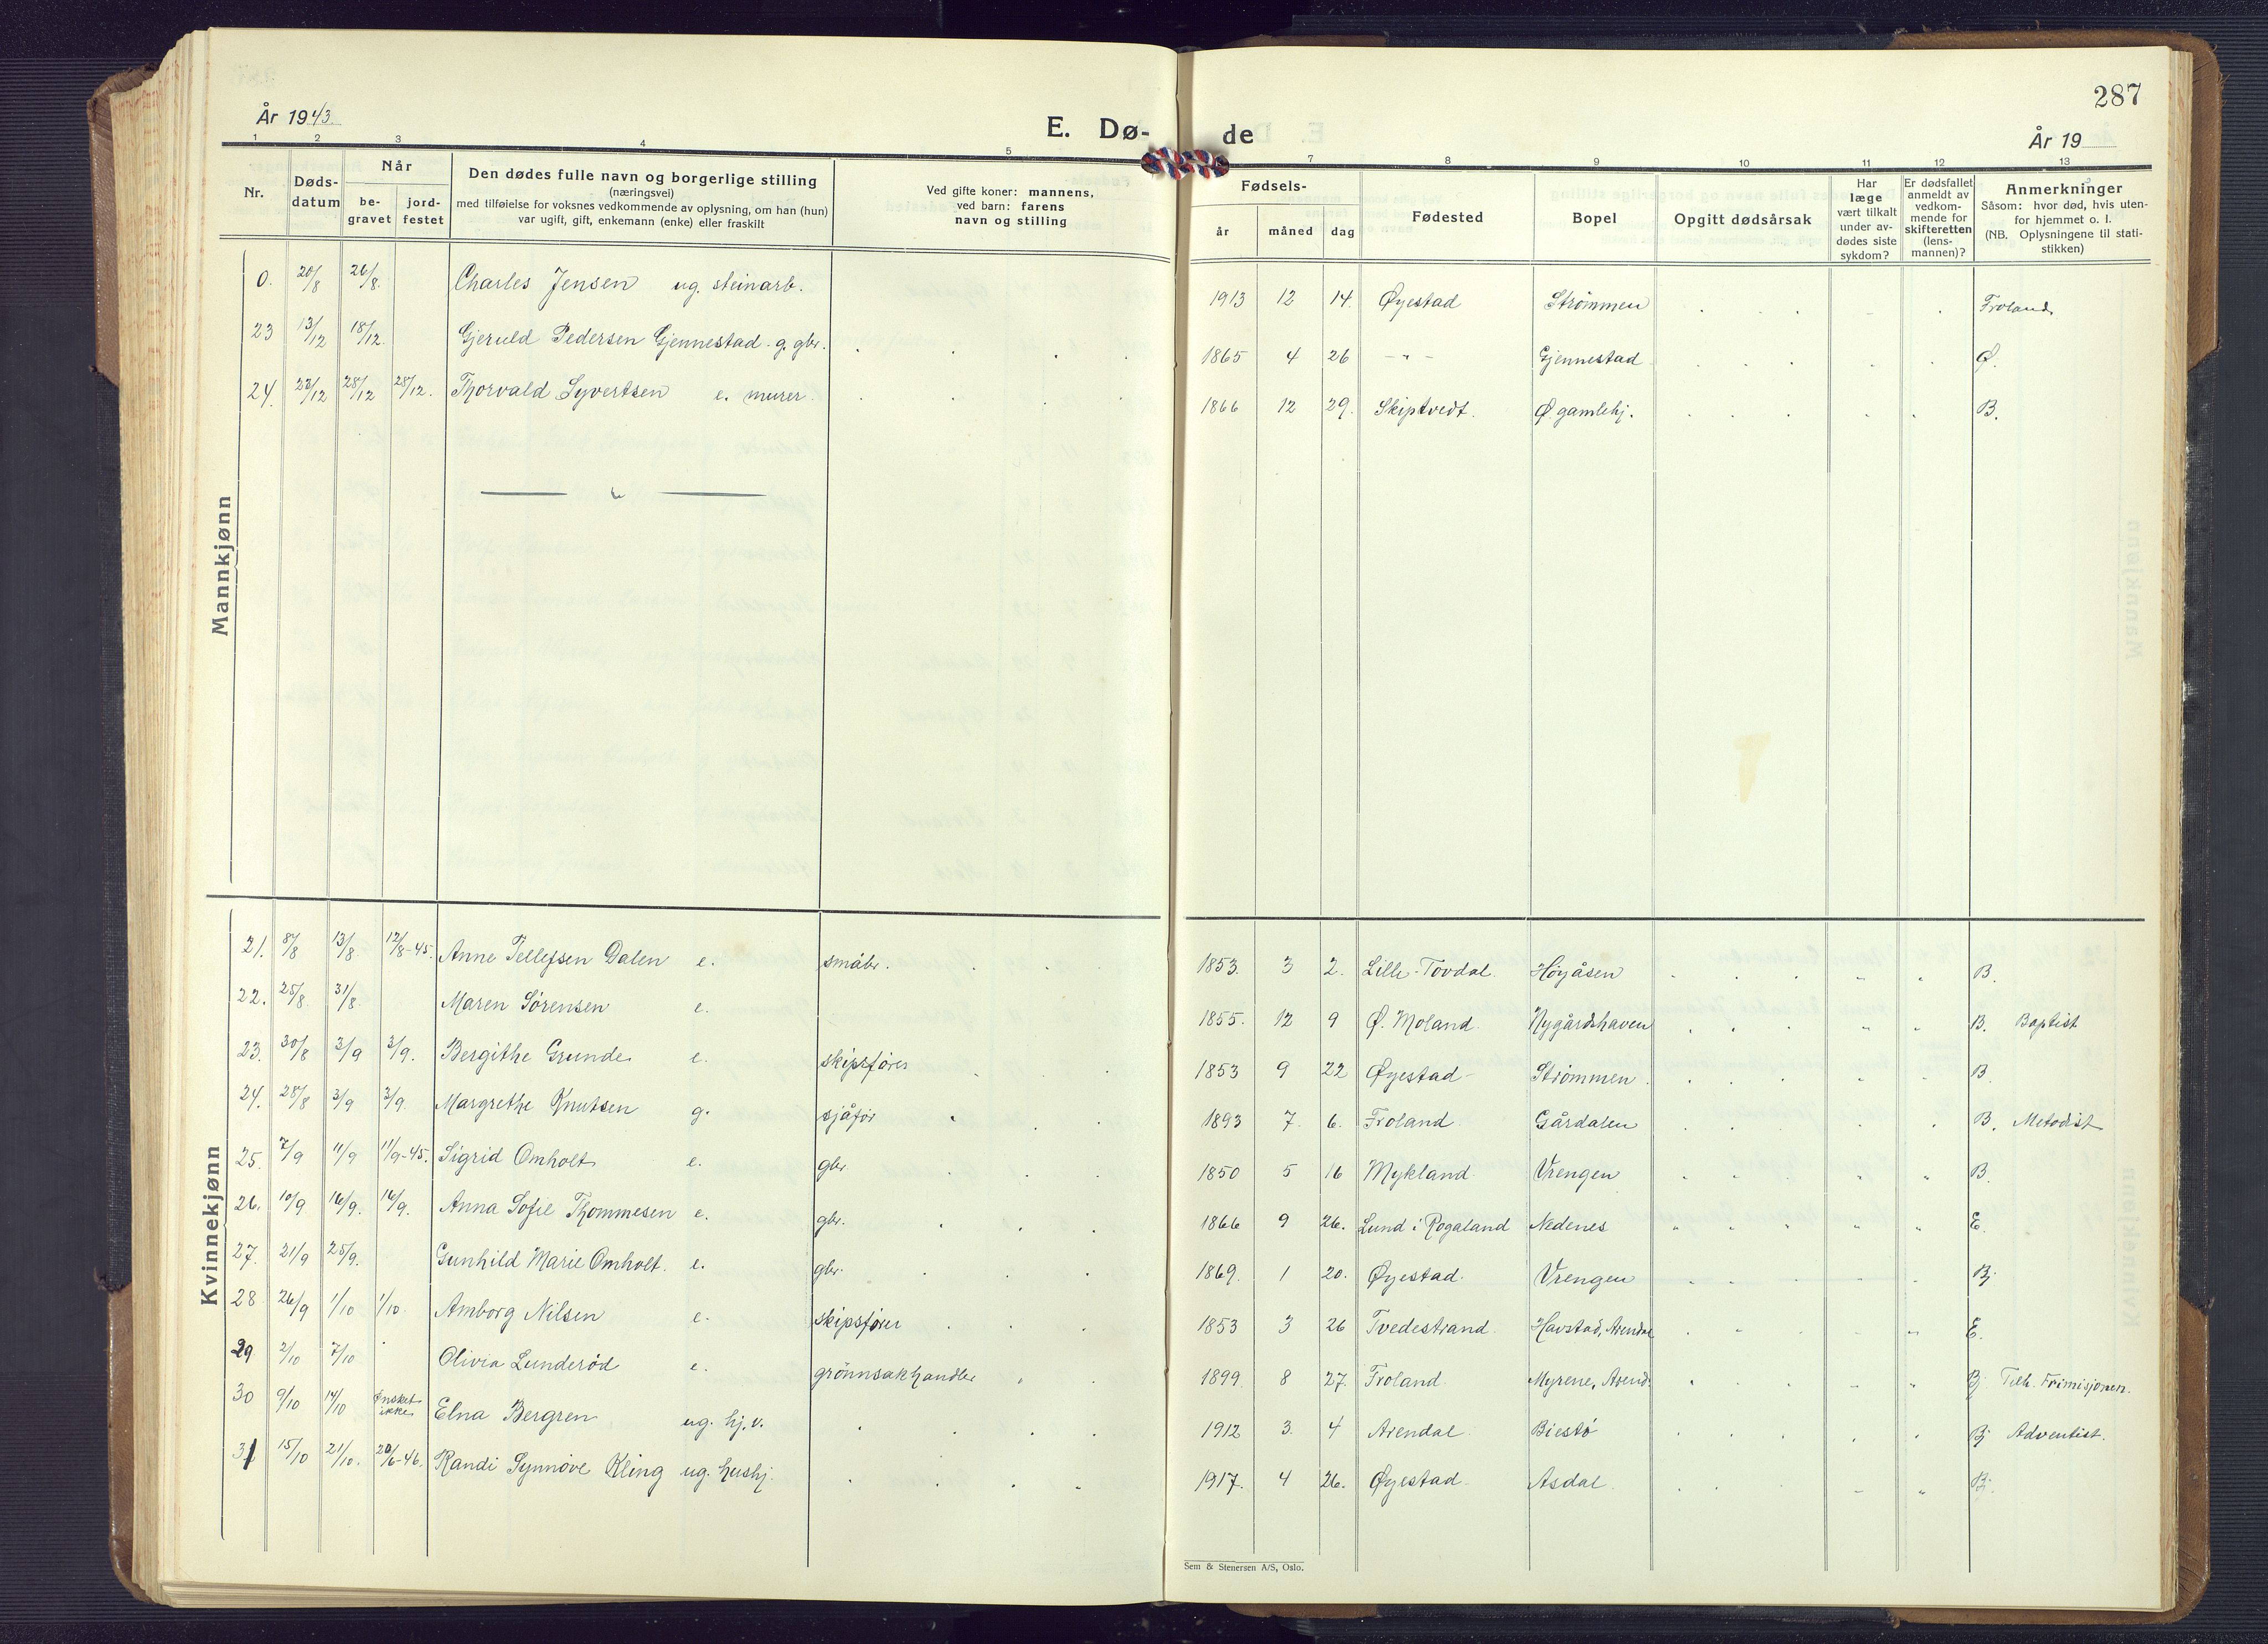 287
År 1943.
E. Dø-
de
År 19
1 2 3 4 5 7 8 9 10 11 12 13
Nr.
Døds-
datum
Når
be-
gravet
jord-
festet
Den dødes fulle navn og borgerlige stilling
(næringsvei)
med tilføielse for voksnes vedkommende av oplysning, om han (hun)
var ugift, gift, enkemann (enke) eller fraskilt
Ved gifte koner: mannens,
ved barn: farens
navn og stilling
Fødsels-
år måned dag
Fødested
Bopel
Opgitt dødsårsak
Har
læge
vært tilkalt
under av-
dødes siste
sykdom?
Er dødsfallet
anmeldt av
vedkom-
mende for
skifteretten
(lens-
mannen)?
Anmerkninger
Såsom: hvor død, hvis uten-
for hjemmet o. l.
(NB. Oplysningene til stati-
stikken)
Mannkjønn
0. 20/8 26/8. Charles Jensen ug. steinarb. 1913 12 14. Øyestad Strømmen Froland.
23 13/12 18/12. Gjeruld Pedersen Gjennestad g. gbr. 1865 4 26 -"- Gjennestad Ø.
24. 23/12 28/12 28/12. Thorvald Syvertsen e. murer. 1866 12 29. Skiptvedt. Ø. gamlehj. B.
Kvinnekjønn
21. 8/8 13/8 12/8-45. Anne Tellefsen Dalen e. småbr. 1853. 3 2. Lille-Tovdal. Høyåsen B.
22. 25/8. 31/8. Maren Sørensen e. 1855. 12 9 Ø. Moland. Nygårdshaven B. Baptist
23. 30/8 3/9 3/9. Bergithe Grunde e. skipsfører 1853 9 22 Øyestad Strømmen. B.
24. 28/8 3/9 3/9. Margrethe Knutsen g. sjåfør 1893 7. 6. Froland Gårdalen B. Metodist
25. 7/9 11/9 11/9-45. Sigrid Omholt e. gbr. 1850 5 16 Mykland Vrengen B.
26. 10/9 16/9. 16/9. Anna Sofie Thommesen e. gbr. 1866 9 26. Lund i Rogaland Nedenes E.
27. 21/9 25/9. Gunhild Marie Omholt. e. gbr. 1869. 1 20. Øyestad. Vrengen Bj.
28 26/9 1/10 1/10. Amborg Nilsen e. skipsfører 1853 3 26 Tvedestrand. Havstad, Arendal E.
29 2/10 7/10 Olivia Lunderød e. grönnsakhandler 1899 8 27. Froland. Myrene, Arend. Bj. Tilh. Frimisjonen.
30 9/10 14/10 Ønsket ikke Elna Bergren ug. hj.v. 1912 3. 4 Arendal Biestø Bj Adventist.
31 15/10 21/10. 20/6-46. Randi Synnøve Kling ug. hushj. 1917. 4 26. Øyestad Asdal. Bj.
Sem & Stenersen A/S, Oslo.